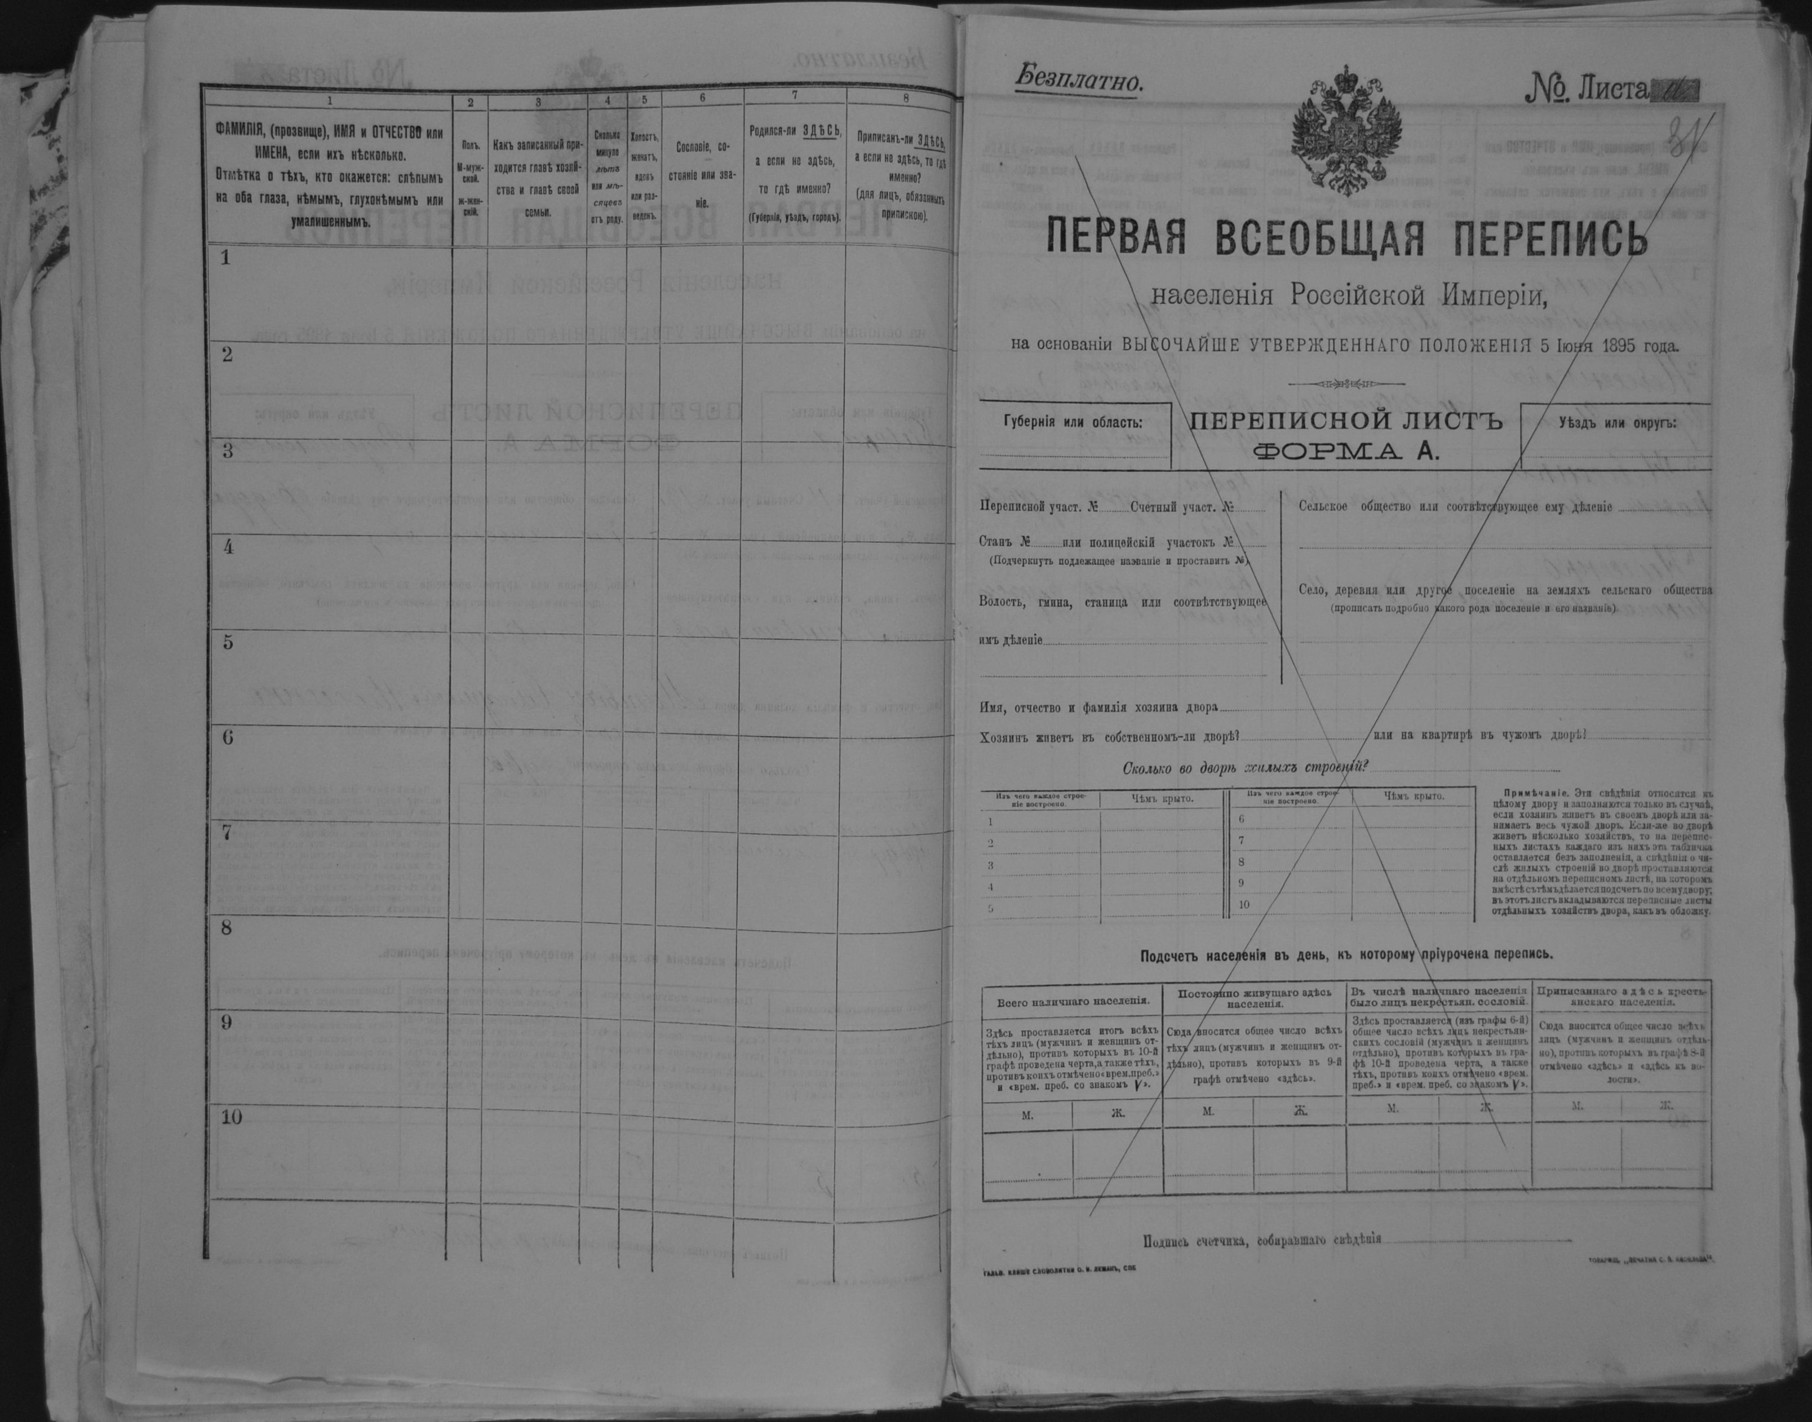 1 2 3 4 5 6 7 8
ФАМИЛІЯ, (прозвище), ИМЯ и ОТЧЕСТВО или
ИМЕНА, если ихъ нѣсколько.
Отмѣтка о тѣхъ, кто окажется: слѣпымъ
на оба глаза, нѣмымъ, глухонѣмымъ или
умалишеннымъ.
Полъ.
М-муж-
ской.
ж-жен-
скій.
Какъ записанный при-
ходится главѣ хозяй-
ства и главѣ своей
семьи.
Сколько
минуло
лѣтъ
или мѣ-
сяцевъ
отъ роду.
Холостъ,
женатъ,
вдовъ
или раз-
веденъ.
Сословіе, со-
стояніе или зва-
ніе.
Родился-ли ЗДѢСЬ,
а если не здѣсь,
то гдѣ именно?
(Губернія, уѣздъ, городъ).
Приписанъ-ли ЗДѢСЬ,
а если не здѣсь, то гдѣ
именно?
(для лицъ, обязанныхъ
припискою).
1
2
3
4
5
6
7
8
9
10
Безплатно.
№. Листа
ПЕРВАЯ ВСЕОБЩАЯ ПЕРЕПИСЬ
населенія Россійской Имперіи,
на основаніи ВЫСОЧАЙШЕ УТВЕРЖДЕННАГО ПОЛОЖЕНІЯ 5 Іюня 1895 года.
Губернія или область:
ПЕРЕПИСНОЙ ЛИСТЪ
ФОРМА А.
Уѣздъ или округъ:
Переписной участ. № Счетный участ. №
Станъ № или полицейскій участокъ №
(Подчеркнуть подлежащее названіе и проставить №)
Волость, гмина, станица или соотвѣтствующее
имъ дѣленіе
Сельское общество или соотвѣтствующее ему дѣленіе
Село, деревня или другое поселеніе на земляхъ сельскаго общества
(прописать подробно какого рода поселеніе и его названіе)
Имя, отчество и фамилія хозяина двора
Хозяинъ живетъ въ собственномъ-ли дворѣ? или на квартирѣ въ чужомъ дворѣ?
Сколько во дворѣ жилыхъ строеній?
Изъ чего каждое строе-
ніе построено.
Чѣмъ крыто.
1
2
3
4
5
Изъ чего каждое строе-
ніе построено.
Чѣмъ крыто.
6
7
8
9
10
Примѣчаніе. Эти свѣдѣнія относятся къ
цѣлому двору и заполняются только въ случаѣ,
если хозяинъ живетъ въ своемъ дворѣ или за-
нимаетъ весь чужой дворъ. Если-же во дворѣ
живетъ нѣсколько хозяйствъ, то на перепис-
ныхъ листахъ каждаго изъ нихъ эта табличка
оставляется безъ заполненія, а свѣдѣнія о чи-
слѣ жилыхъ строеній во дворѣ проставляются
на отдѣльномъ переписномъ листѣ, на которомъ
вмѣстѣ съ тѣмъ дѣлается подсчетъ по всему двору;
въ этотъ листъ вкладываются переписные листы
отдѣльныхъ хозяйствъ двора, какъ въ обложку.
Подсчетъ населенія въ день, къ которому пріурочена перепись.
Всего наличнаго населенія.
Здѣсь проставляется итогъ всѣхъ
тѣхъ лицъ (мужчинъ и женщинъ от-
дѣльно), противъ которыхъ въ 10-й
графѣ проведена черта, а также тѣхъ,
противъ коихъ отмѣчено «врем. преб.»
и «врем. преб. со знакомъ V».
М. Ж.
Постоянно живущаго здѣсь
населенія.
Сюда вносится общее число всѣхъ
тѣхъ лицъ (мужчинъ и женщинъ от-
дѣльно), противъ которыхъ въ 9-й
графѣ отмѣчено «здѣсь».
М. Ж.
Въ числѣ наличнаго населенія
было лицъ некрестьян. сословій.
Здѣсь проставляется (изъ графы 6-й)
общее число всѣхъ лицъ некрестьян-
скихъ сословій (мужчинъ и женщинъ
отдѣльно), противъ которыхъ въ гра-
фѣ 10-й проведена черта, а также
тѣхъ, противъ коихъ отмѣчено «врем.
преб.» и «врем. преб. со знакомъ V».
М. Ж.
Приписаннаго здѣсь кресть-
янскаго населенія.
Сюда вносится общее число всѣхъ
лицъ (мужчинъ и женщинъ отдѣль-
но), противъ которыхъ въ графѣ 8-й
отмѣчено «здѣсь» и «здѣсь къ во-
лости».
М. Ж.
Подпись счетчика, собиравшаго свѣдѣнія
ГАЛЬВ. КЛИШЕ СЛОВОЛИТНИ О. И. ЛЕМАНЪ, СПБ